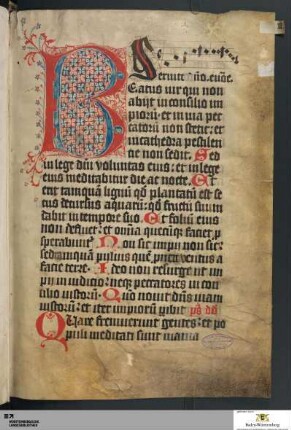 Seruite dño. euoue.
Beatus vir qui non
abijt in consilio im
piorũ · et in uia pec
catorũ non stetit · et
in cathedra pestilen
tie non sedit. Sed
in lege dñi voluntas eius : et in lege
eius meditabitur die ac nocte. Et
erit tamquã lignũ qď plantatũ est se
cus decursus aquarũ : qď fructũ suum
dabit in tempore suo. Et foliũ eius
non defluet : et omĩa quecũqʒ faciet p̃
sperabũtʳ Non sic impij non sic :
sed tamquã puluis quẽ proicit ventus a
facie terre. Ideo non resurgẽt im
pij in iudicio : neqʒ peccatores in con
silio iustorũ. Qm̃ nouit dñs uiam
iustorũ : et iter impiorũ ꝑibit.
Quare fremuerunt gentes : et po
puli meditati sunt inania
Baden-Württemberg